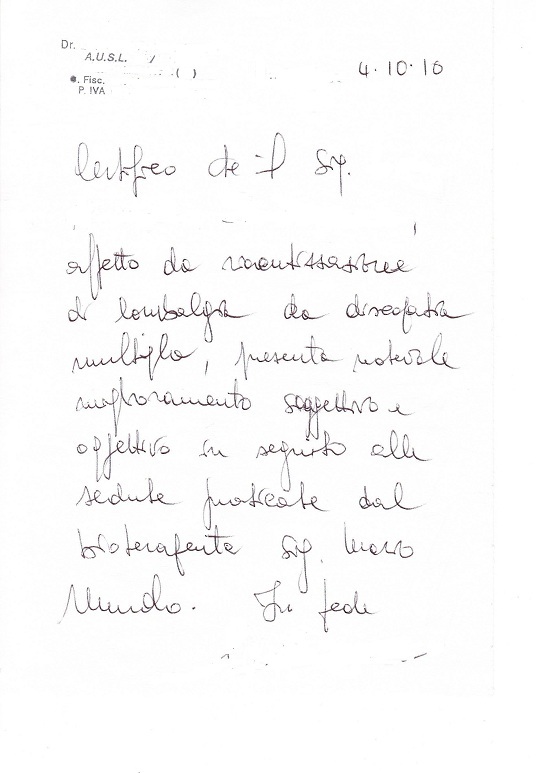 Dr.
A.U.S.L.
( )
. Fisc.
P. IVA
4.10.10
Certifico che il Sig.
affetto da
di lombalgia da discopatia
multipla, presenta notevole
miglioramento soggettivo e
oggettivo in seguito alle
sedute praticate dal
bioterapeuta Sig. Marco
Mundo. In fede